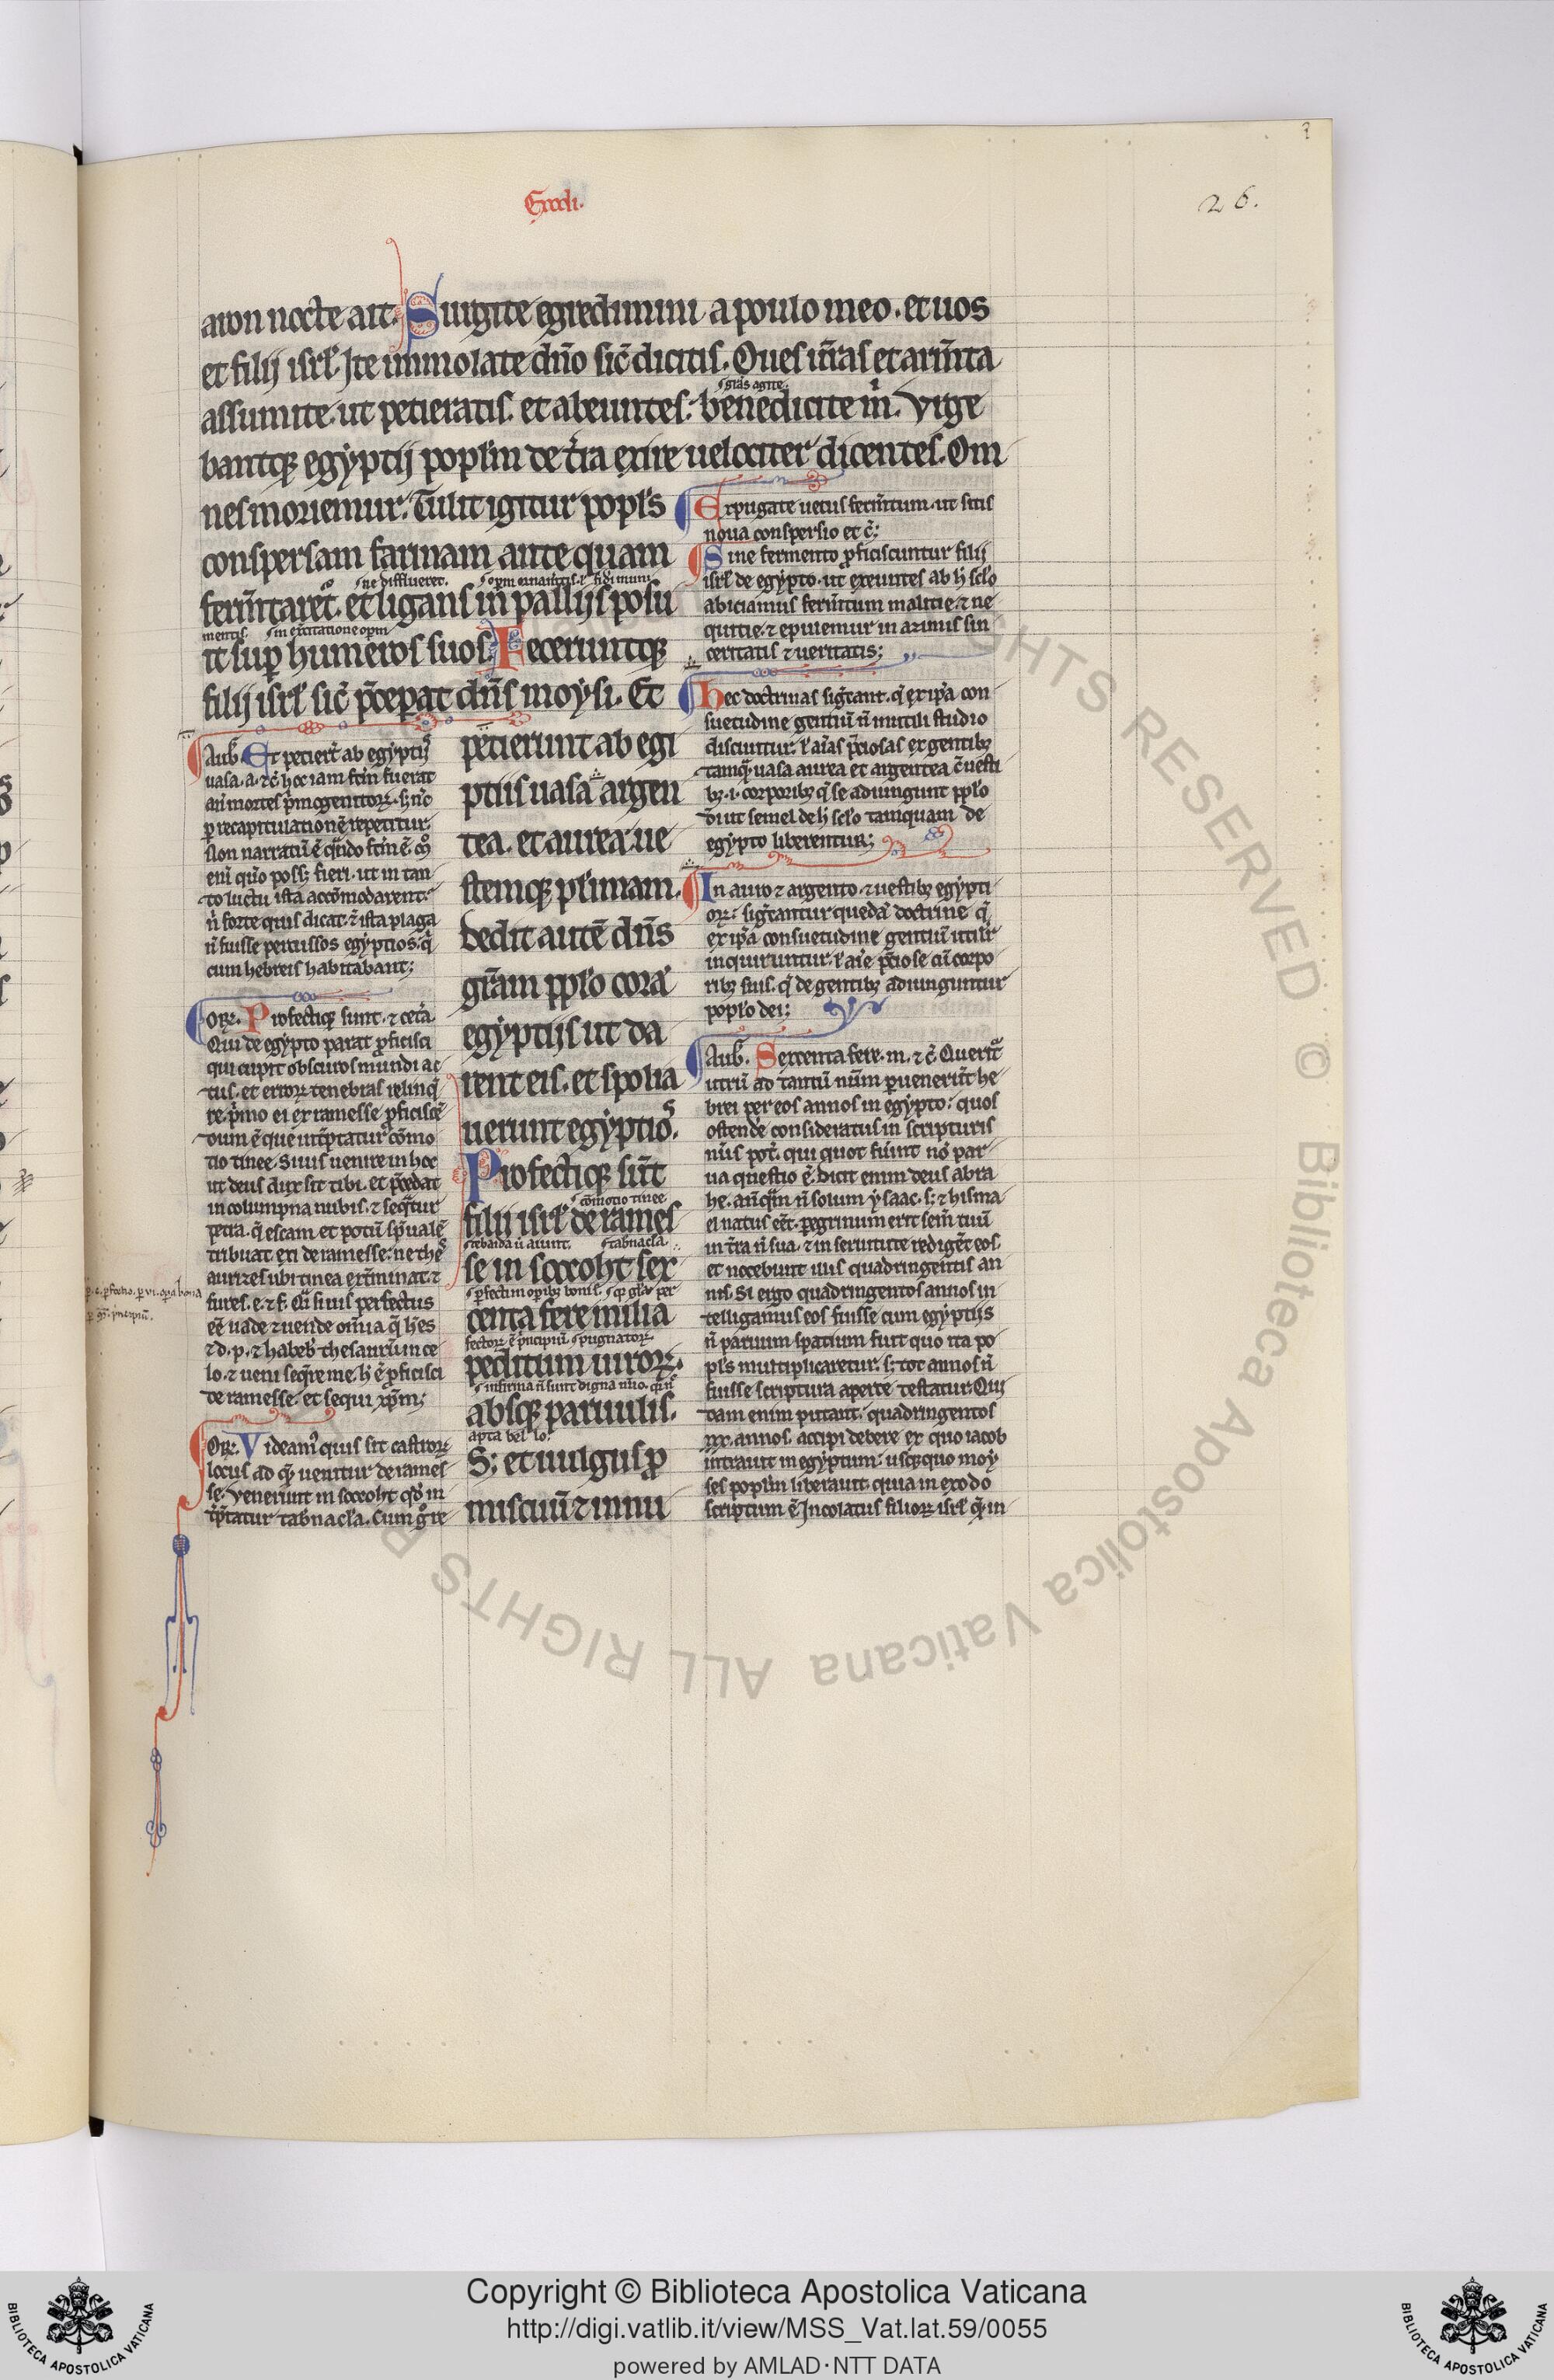 Exodi.
26.
aron nocte ait. Surgite egredimini a poulo meo. et uos
et filij isrl̄. Ite immolate dn̄o sic̄ dicitis. Oues ur̄as et arm̄ta
glās agite.
assumite. ut petieratis. et abeuntes. benedicite m̄. Vrge
bantq; egyptij popl̄m de t̄ra exire uelociter dicentes. Om
nes moriemur. Tulit igitur popl̄s
conspersam farinam ante quam
ne difflueret.
ferm̄taret. et ligans in pallijs posu
mentis. in exc̄itatione op̄m
it sup̄ humeros suos. Feceruntq;
filij isrl̄ sic̄ p̄ceperat dn̄s moysi. Et
petierunt ab egi
ptiis uasa argen
tea. et aurea. ue
stemq; plurimam.
Dedit autē dn̄s
gr̄am ppl̄o corā
egyptijs ut da
rent eis. et spolia
uerunt egyptios.
Profectiq; sūt
cōmotio tinee
filij isrl̄ de rames
tabnacl̄a
se in socoht sex
centa fere milia
peditum uiror̄.
absq; paruulis.
S; et uulgus p̄
miscuū & innu
Auḡ. Et petier̄t ab egyptijs
uasa. a. &c̄. hoc iam fc̄m fuerat
an̄ mortes p̄mogenitor̄. s; nc̄
p̄ recapitulationē repetitur.
Non narratū ē qn̄do fc̄m ē. Qō
eni quo poss; fieri. ut in tan
to luctu ista accōmodarent.
n̄ forte quis dicat. & ista plaga
n̄ fuisse percussos egyptios. q̄
cum hebreis habitabant;
Or̄. Profectiq; sunt. & cet̄a.
Qui de egypto parat p̄ficisci
qui cupit obscuros mundi ac
tus. et error̄ tenebras relinq̄
re. p̄mo ei ex ramesse p̄ficiscē
dum ē que int̄p̄tatur cōmo
tio tinee. Si uis uenire in hoc
ut deus dux sit tibi. et p̄cedat
in columpna nubis. & seq̄tur
petra. q̄ escam et potū sp̄ualē
tribuat. exi de ramesse. ne the
aurizes ubi tinea ext̄minat. &
fures. e. & f. Qd̄ si uis perfectus
ēē uade & uende om̄ia q̄ h̄es
& d. p. & habeb̄ thesaurū in ce
lo. & ueni seq̄re me. h̄ ē p̄ficisci
de ramesse. et sequi xp̄m;
Or̄. Videam̄ quis sit castror̄
locus ad q̄ uenitur de rames
se. Venerunt in socoht qd̄ in
t̄p̄tatur tabnacl̄a. Cum ḡ re
Expurgate uetus ferm̄tum. ut sitis
noua conspersio et c̄;
Sine fermento p̄ficiscuntur filij
isrl̄ de egypto. ut exeuntes ab h̄ scl̄o
abiciamus ferm̄tum malitie. & ne
quitie. & epulemur in azimis sin
ceritatis & ueritatis;
Hec doctrinas sig̃cant. q̄ ex ip̄a con
suetudine gentiū n̄ inutili studio
discuntur. l̄ aīas p̄ciosas ex gentib;
tamq̄ uasa aurea et argentea c̄ uesti
b;. i. corporib; q̄ se adiungunt ppl̄o
di ut semel de h̄ scl̄o tamquam de
egypto liberentur;
In auro & argento. & uestib; egypti
or̄. sig̃cantur quedā doctrine q̄
ex ip̄a consuetudine gentiū utilit̄
inquiruntur. l̄ aīe p̄ciose cū corpo
rib; suis. q̄ de gentib; adiunguntur
popl̄o dei;
Auḡ. Sexcenta fere. m. & c̄ Querit̄
utrū ad tantū num̄ p̄uenerūt he
brei per eos annos in egypto. quos
ostendē consideratus in scripturis
nūs pot̄. qui quot fūint nō par
ua questio ē. Dicit enim deus abra
he. an̄q̄m n̄ solum ysaac. s; & hisma
el natus eēt. peregrinum erit sem̄ tuū
in t̄ra n̄ sua. & in seruitute rediget eos.
et nocebunt illis quadringentis an
nis. Si ergo quadringentos annos in
telligamus eos fuisse cum egyptijs
n̄ paruum spatium fuit quo ita po
pl̄s multiplicaretur. s; tot annos n̄
fuisse scriptura aperte testatur. Qui
dam enim putant. quadringentos
xxx. annos. accipi debere ex quo iacob
intrauit in egyptum. usq; quo moy
ses popl̄m liberauit. quia in exodo
scriptum ē. Incolatus filior̄ isrl̄ q̄ in
ALL RIGHTS RESERVED © Biblioteca Apostolica Vaticana
Copyright © Biblioteca Apostolica Vaticana
http://digi.vatlib.it/view/MSS_Vat.lat.59/0055
powered by AMLAD·NTT DATA
BIBLIOTECA APOSTOLICA VATICANA
BIBLIOTECA APOSTOLICA VATICANA